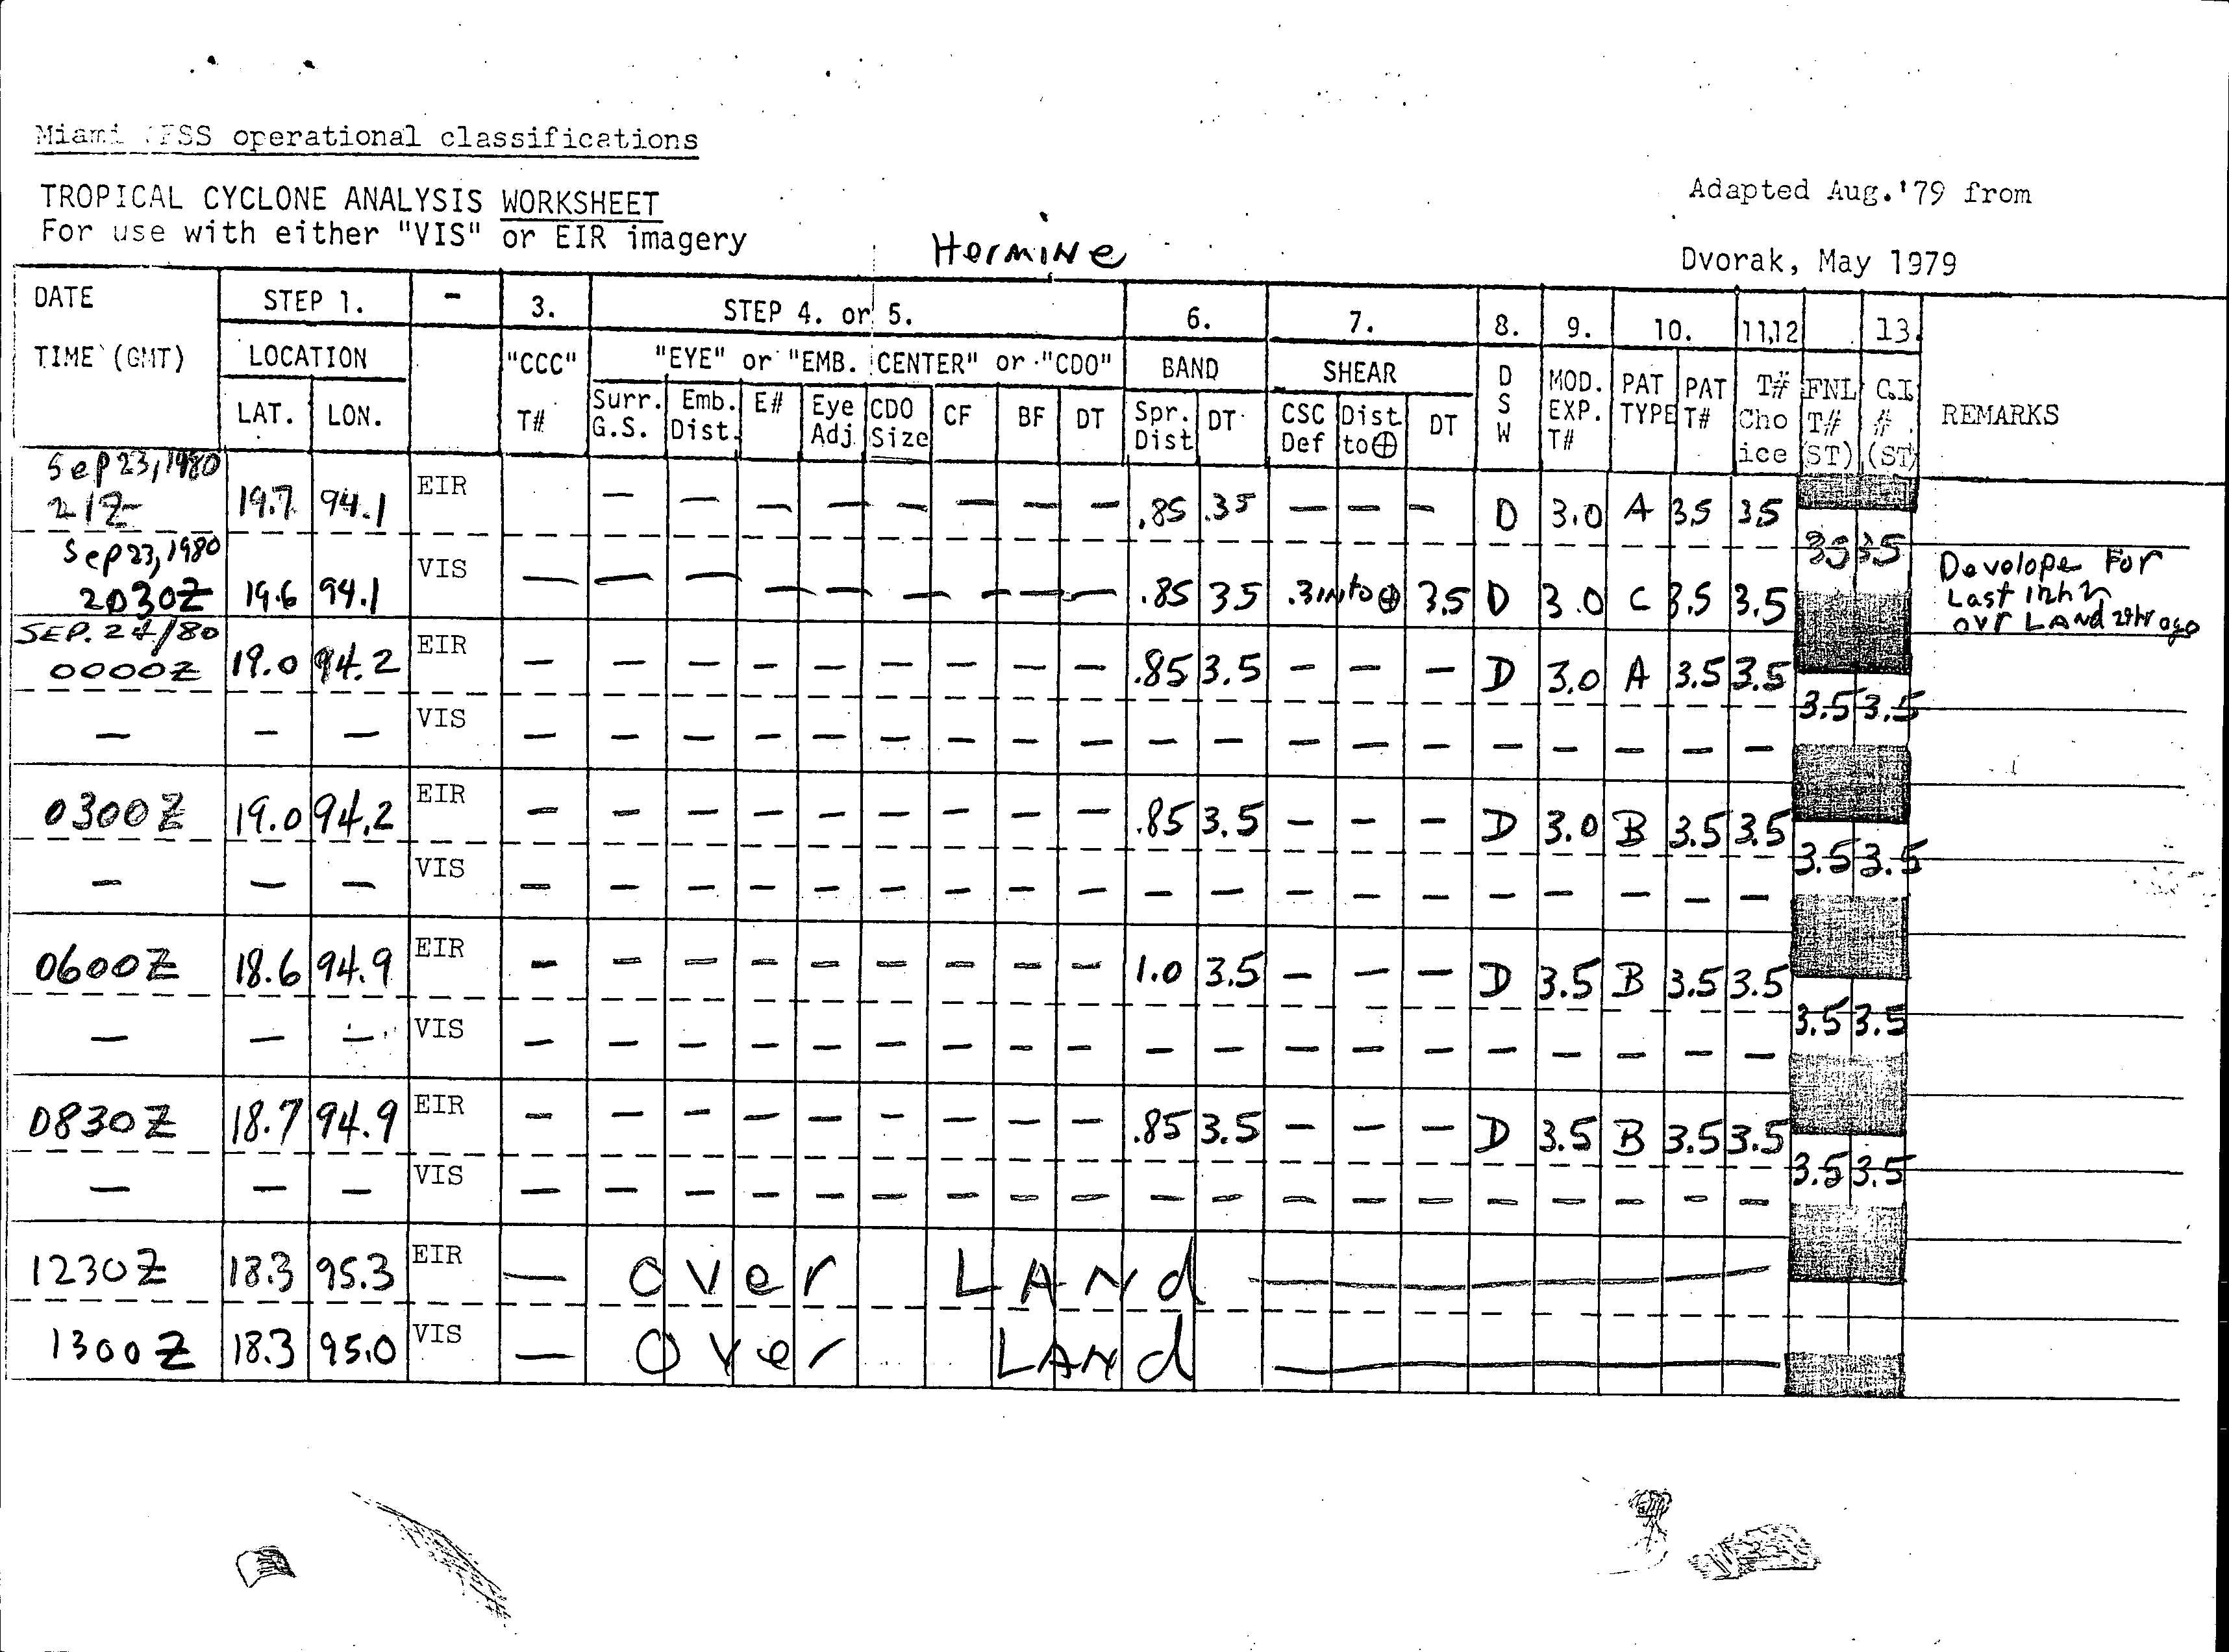 Miami SFSS operational classifications
TROPICAL CYCLONE ANALYSIS WORKSHEET
For use with either "VIS" or EIR imagery
Hermine
Adapted Aug.'79 from
Dvorak, May 1979
DATE STEP 1. - 3. STEP 4. or 5. 6. 7. 8. 9. 10. 11,12 13.
TIME (GMT) LOCATION "CCC" "EYE" or "EMB. CENTER" or "CDO" BAND SHEAR D S W MOD. EXP. T# PAT TYPE PAT T# T# Choice FNL T# (ST) C.I. # (ST) REMARKS
LAT. LON. T# Surr. G.S. Emb. Dist. E# Eye Adj CDO Size CF BF DT Spr. Dist DT CSC Def Dist to⊕ DT
Sep 23, 1980
21Z 19.7 94.1 EIR — — — — — — — — .85 .35 — — — D 3.0 A 35 35
35 35
Sep 23, 1980
2030Z 19.6 94.1 VIS — — — — — — — — — .85 35 .3 into ⊕ 3.5 D 3.0 C 3.5 3.5
Develope For
Last 12h
ovr LAND 24hr ago
SEP. 24/80
0000Z 19.0 94.2 EIR — — — — — — — — — .85 3.5 — — — D 3.0 A 3.5 3.5
3.5 3.5
— — — VIS — — — — — — — — — — — — — — — — — — — —
0300Z 19.0 94.2 EIR — — — — — — — — — .85 3.5 — — — D 3.0 B 3.5 3.5
3.5 3.5
— — — VIS — — — — — — — — — — — — — — — — — — — —
0600Z 18.6 94.9 EIR — — — — — — — — — 1.0 3.5 — — — D 3.5 B 3.5 3.5
3.5 3.5
— — — VIS — — — — — — — — — — — — — — — — — — — —
0830Z 18.7 94.9 EIR — — — — — — — — — .85 3.5 — — — D 3.5 B 3.5 3.5
3.5 3.5
— — — VIS — — — — — — — — — — — — — — — — — — — —
1230Z 18.3 95.3 EIR — Over LANd —
1300Z 18.3 95.0 VIS — Over LANd —